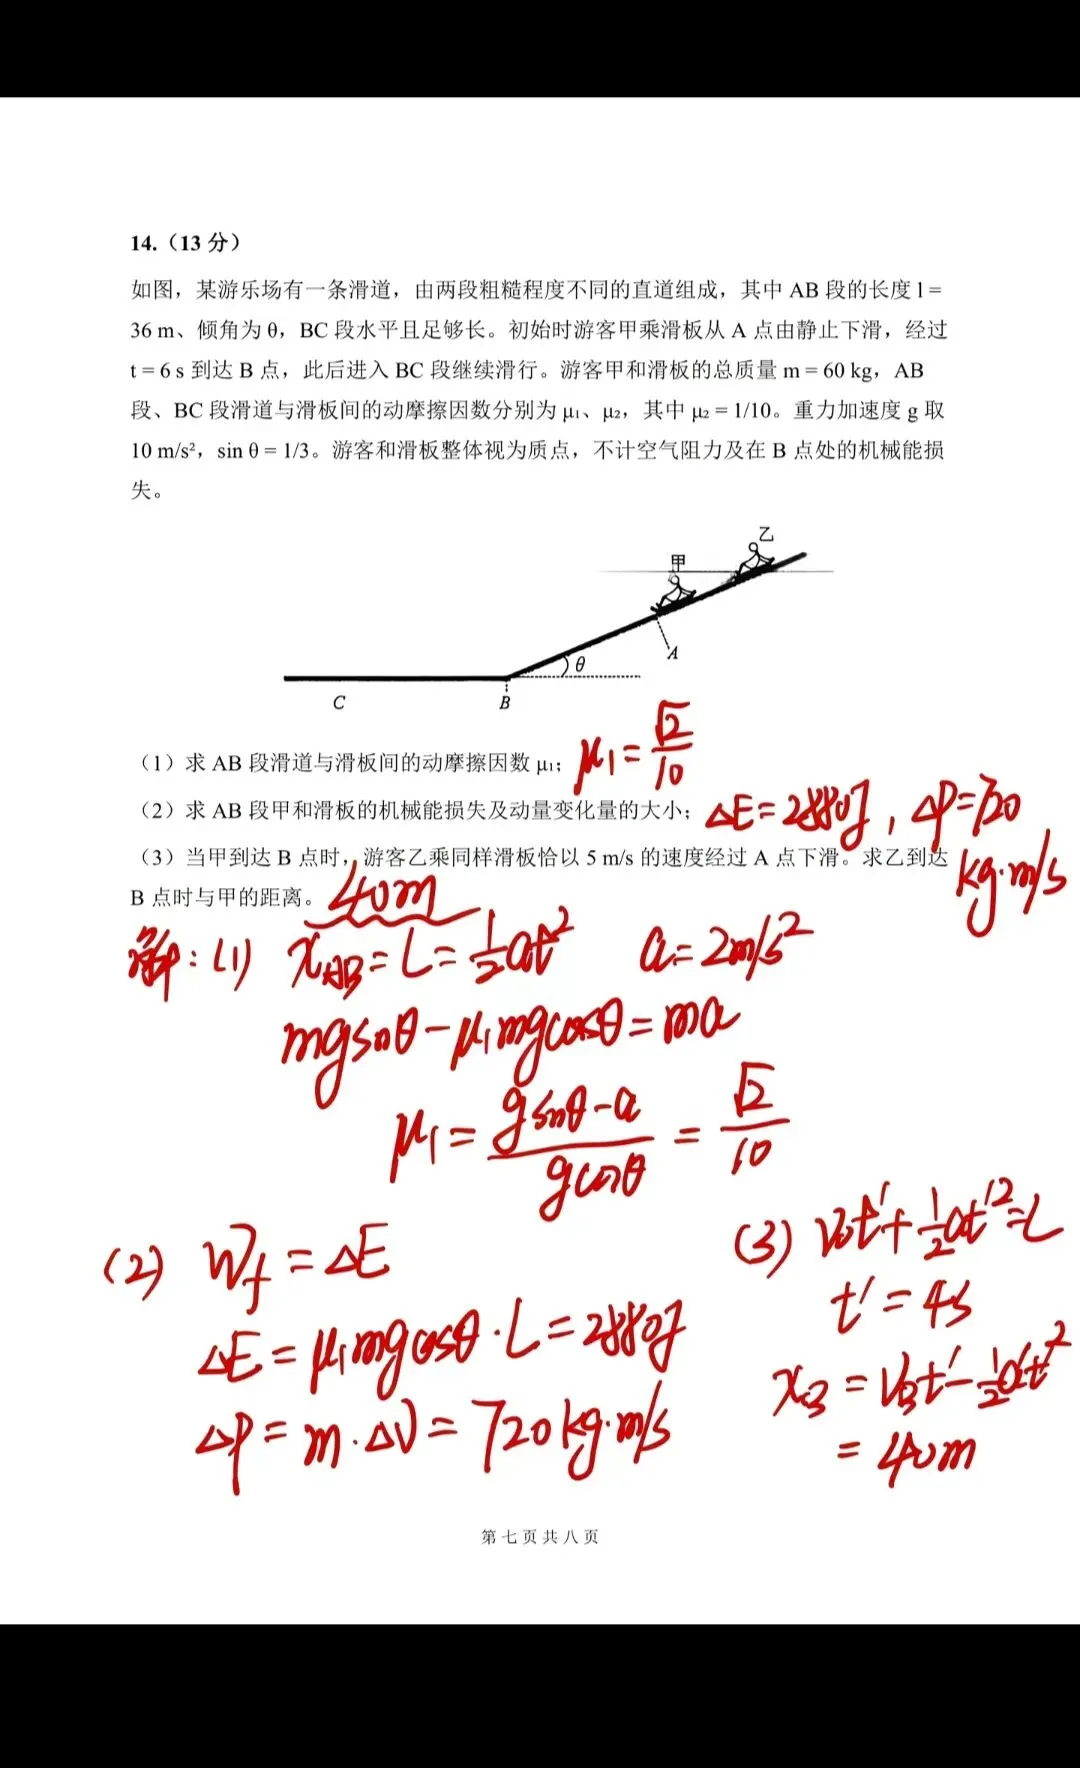 14.（13 分）
如图，某游乐场有一条滑道，由两段粗糙程度不同的直道组成，其中 AB 段的长度 l =
36 m、倾角为 θ，BC 段水平且足够长。初始时游客甲乘滑板从 A 点由静止下滑，经过
t = 6 s 到达 B 点，此后进入 BC 段继续滑行。游客甲和滑板的总质量 m = 60 kg，AB
段、BC 段滑道与滑板间的动摩擦因数分别为 μ₁、μ₂，其中 μ₂ = 1/10。重力加速度 g 取
10 m/s²，sin θ = 1/3。游客和滑板整体视为质点，不计空气阻力及在 B 点处的机械能损
失。
乙
甲
A
θ
C
B
（1）求 AB 段滑道与滑板间的动摩擦因数 μ₁； μ₁ = √2/10
（2）求 AB 段甲和滑板的机械能损失及动量变化量的大小； ΔE = 2880J，ΔP = 720
kg·m/s
（3）当甲到达 B 点时，游客乙乘同样滑板恰以 5 m/s 的速度经过 A 点下滑。求乙到达
B 点时与甲的距离。 40m
解：(1) x_AB = L = 1/2 at² a = 2m/s²
mgsinθ - μ₁mgcosθ = ma
μ₁ = (gsinθ - a)/(gcosθ) = √2/10
(2) W_f = ΔE
ΔE = μ₁mgcosθ·L = 2880J
ΔP = m·ΔV = 720kg·m/s
(3) V₀t′ + 1/2 at′² = L
t′ = 4s
x_B = V_Bt′ - 1/2 a′t′²
= 40m
第七页共八页